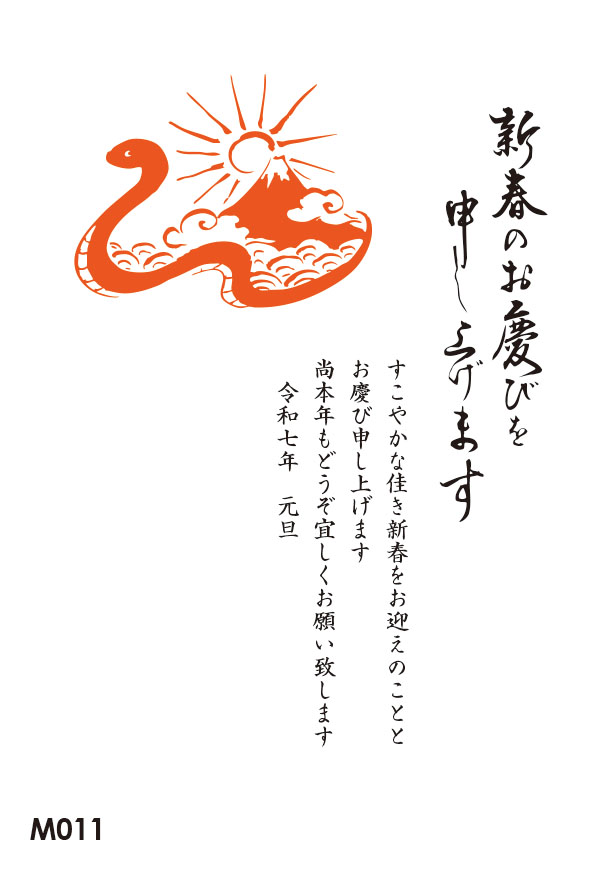 新春のお慶びを
申し上げます
すこやかな佳き新春をお迎えのことと
お慶び申し上げます
尚本年もどうぞ宜しくお願い致します
令和七年　元旦
M011